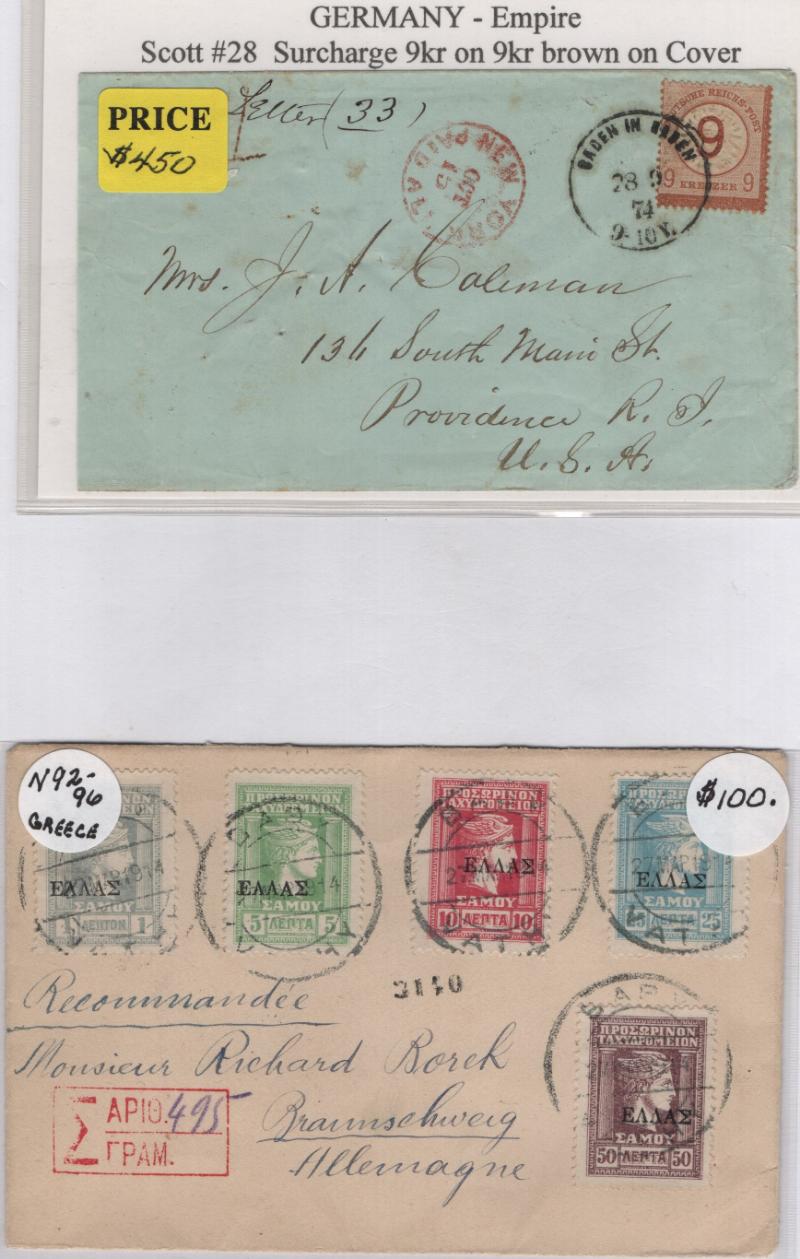 GERMANY - Empire
Scott #28 Surcharge 9kr on 9kr brown on Cover
PRICE
$450
Letter (33)
NEW YORK
OCT
15
PAID ALL
BADEN IN BADEN
28 9
74
9-10 V.
DEUTSCHE REICHS-POST
9
9 KREUZER 9
Mrs. J. A. Coleman
136 South Main St.
Providence R. I.
U. S. A.
N92-
96
GREECE
$100.
ΕΛΛΑΣ
ΣΑΜΟΥ
1 ΛΕΠΤΟΝ 1
ΕΛΛΑΣ
ΣΑΜΟΥ
5 ΛΕΠΤΑ 5
ΠΡΟΣΩΡΙΝΟΝ
ΤΑΧΥΔΡΟΜΕΙΟΝ
ΕΛΛΑΣ
ΣΑΜΟΥ
10 ΛΕΠΤΑ 10
ΕΛΛΑΣ
ΣΑΜΟΥ
25 ΛΕΠΤΑ 25
3140
Recommandée
Monsieur Richard Borek
Braunschweig
Allemagne
Σ ΑΡΙΘ. 495
ΓΡΑΜ.
ΠΡΟΣΩΡΙΝΟΝ
ΤΑΧΥΔΡΟΜΕΙΟΝ
ΕΛΛΑΣ
ΣΑΜΟΥ
50 ΛΕΠΤΑ 50